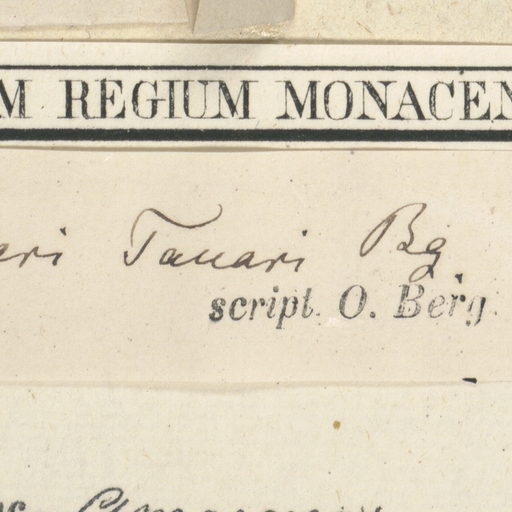 M REGIUM MONACEN
ari Tanari Bg.
script. O. Berg.